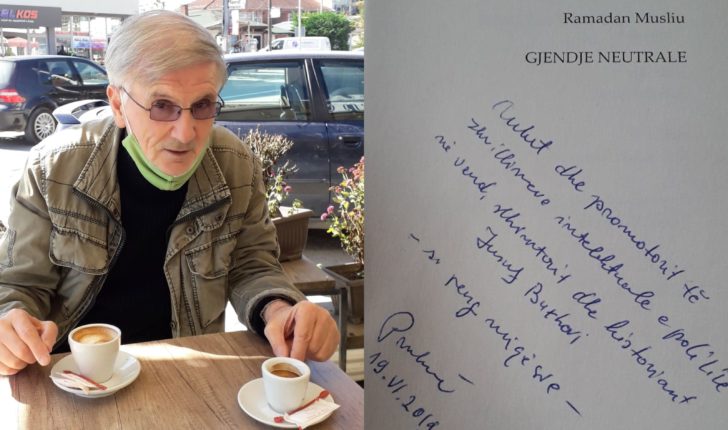 LKOS
Ramadan Musliu
GJENDJE NEUTRALE
Mikut dhe promotorit të
zhvillimeve intelektuale e politike
në vend, shkrimtarit dhe historiant
Jusuf Buxhovi
- si peng miqësie -
19.VI.2019